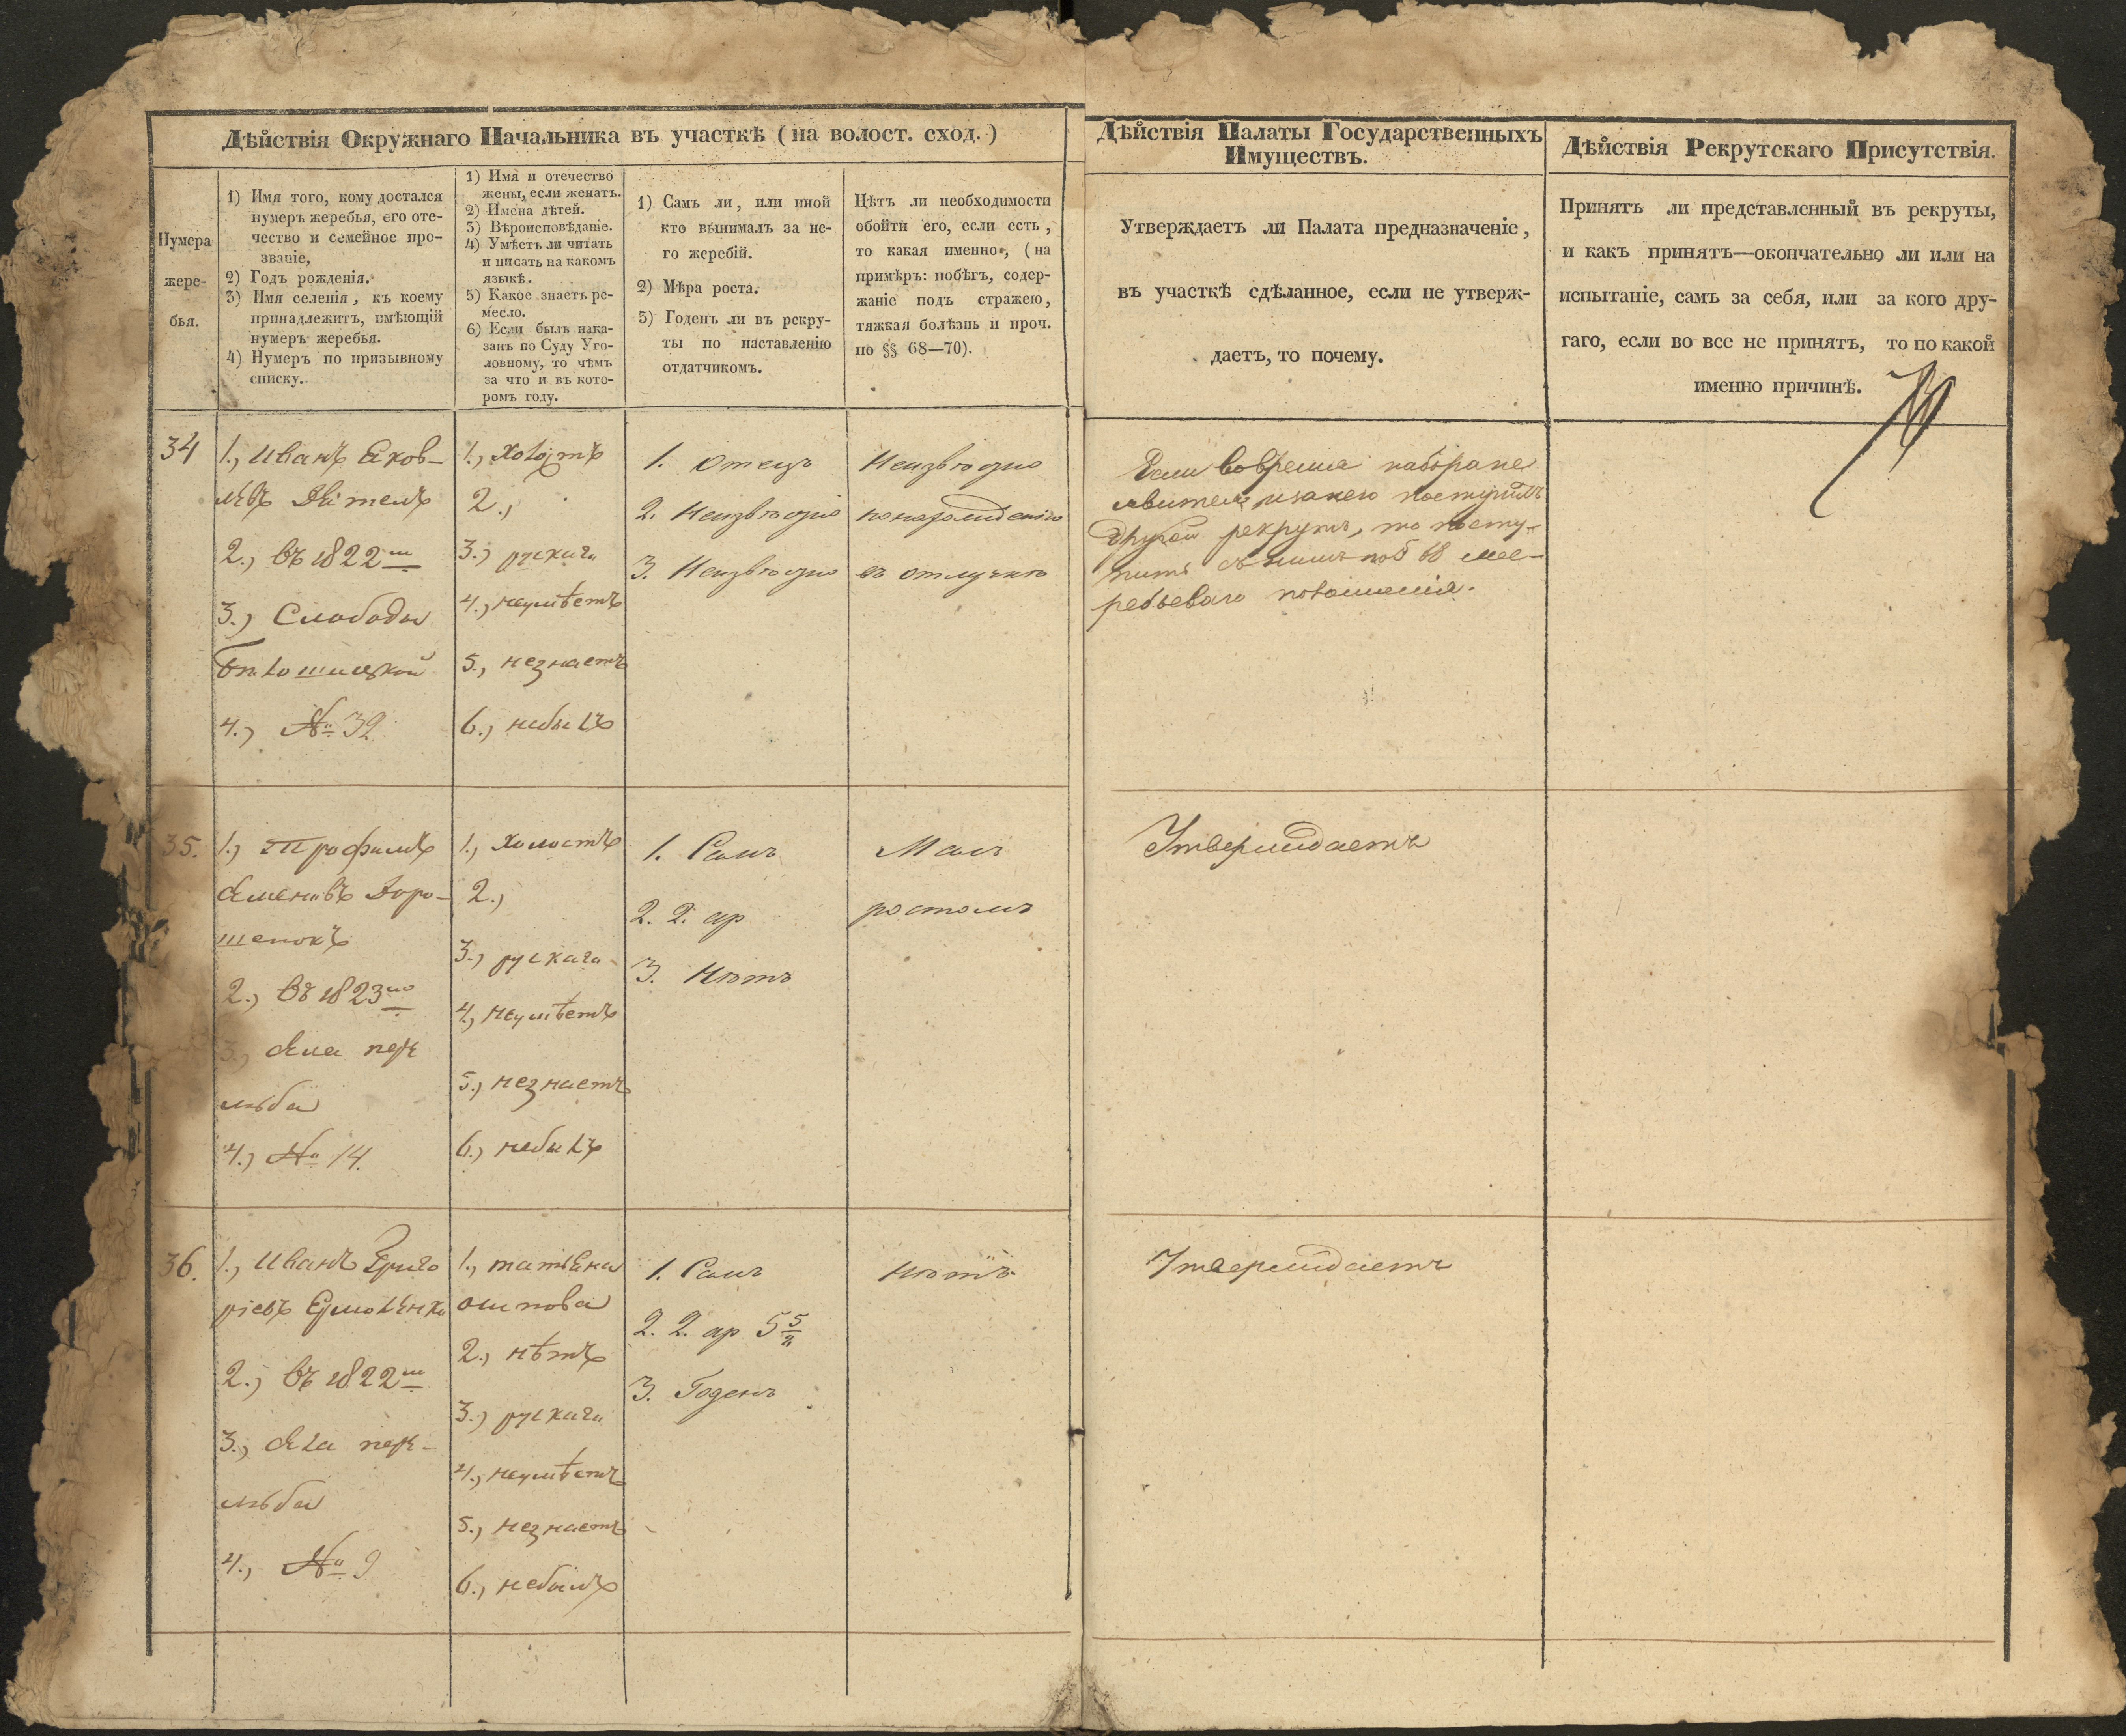 Дѣйствія Окружнаго Начальника въ участкѣ (на волост. сход.)
Нумера
жере-
бья.
1) Имя того, кому достался
нумеръ жеребья, его оте-
чество и семейное про-
званіе,
2) Годъ рожденія.
3) Имя селенія, къ коему
принадлежитъ, имѣющій
нумеръ жеребья.
4) Нумеръ по призывному
списку.
1) Имя и отечество
жены, если женатъ.
2) Имена дѣтей.
3) Вѣроисповѣданіе.
4) Умѣетъ ли читать
и писать на какомъ
языкѣ.
5) Какое знаетъ ре-
месло.
6) Если былъ нака-
занъ по Суду Уго-
ловному, то чѣмъ
за что и въ кото-
ромъ году.
1) Самъ ли, или иной
кто вынималъ за не-
го жеребій.
2) Мѣра роста.
3) Годенъ ли въ рекру-
ты по наставленію
отдатчикомъ.
Нѣтъ ли необходимости
обойти его, если есть,
то какая именно, (на
примѣръ: побѣгъ, содер-
жаніе подъ стражею,
тяжкая болѣзнь и проч.
по §§ 68—70).
Дѣйствія Палаты Государственныхъ
Имуществъ.
Утверждаетъ ли Палата предназначеніе,
въ участкѣ сдѣланное, если не утверж-
даетъ, то почему.
Дѣйствія Рекрутскаго Присутствія.
Принятъ ли представленный въ рекруты,
и какъ принятъ—окончательно ли или на
испытаніе, самъ за себя, или за кого дру-
гаго, если во все не принятъ, то по какой
именно причинѣ.
34
1., Иванъ Яков-
лѣвъ
2., въ 1822мъ
3., Слободы
4., № 32
1., холостъ
2.,
3., рускаго
4., неумѣетъ
5., незнаетъ
6., небылъ
1. Отецъ
2. Неизвѣстно
3. Неизвѣстно
Неизвѣстно
по нахожденію
въ отлучкѣ
Если во время набора не
явится и за него поступитъ
другой рекрутъ, то посту-
пить съ нимъ по § 68 же-
ребьеваго положенія.
35.
1., Трофимъ
Семеновъ Доро-
шенокъ
2., въ 1823мъ
3., Села пере
люба
4., № 14.
1., холостъ
2.,
3., рускаго
4., неумѣетъ
5., незнаетъ
6., небылъ
1. Самъ
2. 2. ар
3. Нѣтъ
Малъ
ростомъ
Утверждаетъ
36.
1., Иванъ Григо
рiевъ Ермоленко
2., въ 1822мъ
3., Села пере-
люба
4., № 9
1., татьяна
осипова
2., нѣтъ
3., рускаго
4., неумѣетъ
5., незнаетъ
6., небылъ
1. Самъ
2. 2. ар 5 5/8
3. Годенъ
Нѣтъ
Утверждаетъ